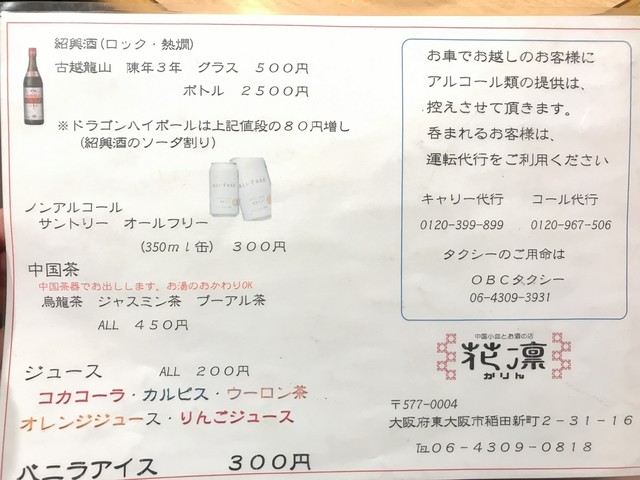 紹興酒(ロック・熱燗)
古越龍山 陳年3年 グラス 500円
ボトル 2500円
※ドラゴンハイボールは上記値段の80円増し
(紹興酒のソーダ割り)
ノンアルコール
サントリー オールフリー
(350ml缶) 300円
中国茶
中国茶器でお出しします。お湯のおかわりOK
烏龍茶 ジャスミン茶 プーアル茶
ALL 450円
ジュース ALL 200円
コカコーラ・カルピス・ウーロン茶
オレンジジュース・りんごジュース
バニラアイス 300円
お車でお越しのお客様に
アルコール類の提供は、
控えさせて頂きます。
呑まれるお客様は、
運転代行をご利用ください
キャリー代行 コール代行
0120-399-899 0120-967-506
タクシーのご用命は
OBCタクシー
06-4309-3931
中国小皿とお酒の店
花凛
かりん
〒577-0004
大阪府東大阪市稲田新町2-31-16
℡06-4309-0818